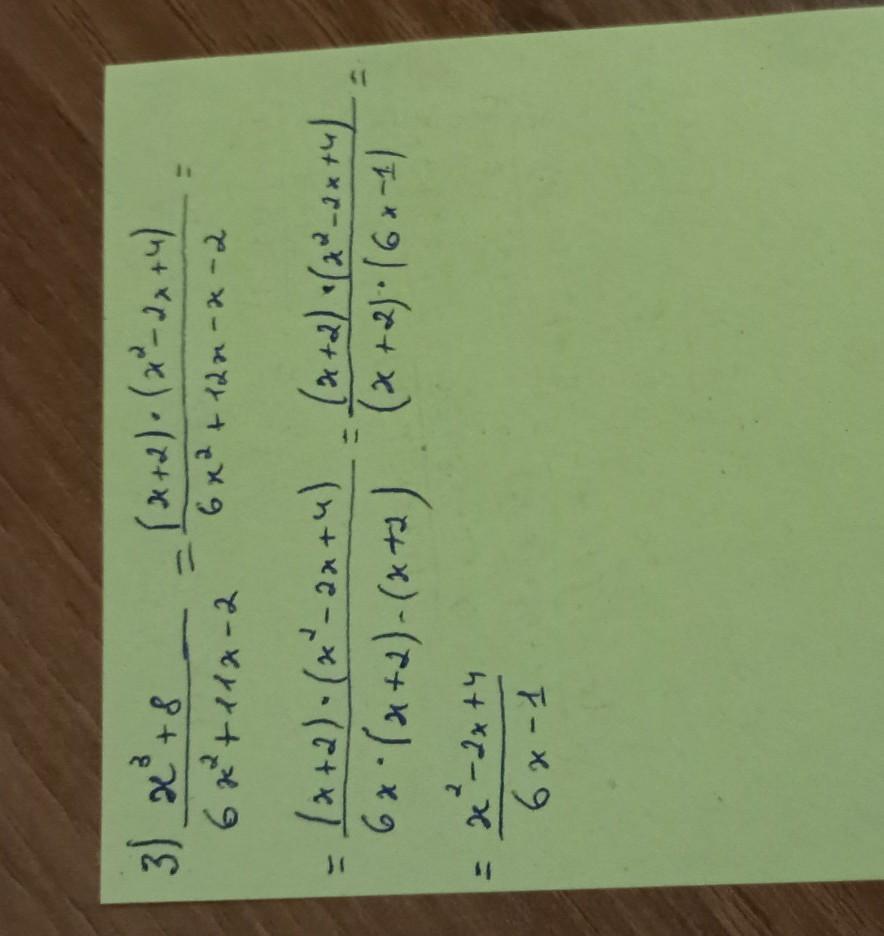 3) (x³+8)/(6x²+11x-2) = ((x+2)·(x²-2x+4))/(6x²+12x-x-2) =
= ((x+2)·(x²-2x+4))/(6x·(x+2)-(x+2)) = ((x+2)·(x²-2x+4))/((x+2)·(6x-1)) =
= (x²-2x+4)/(6x-1)